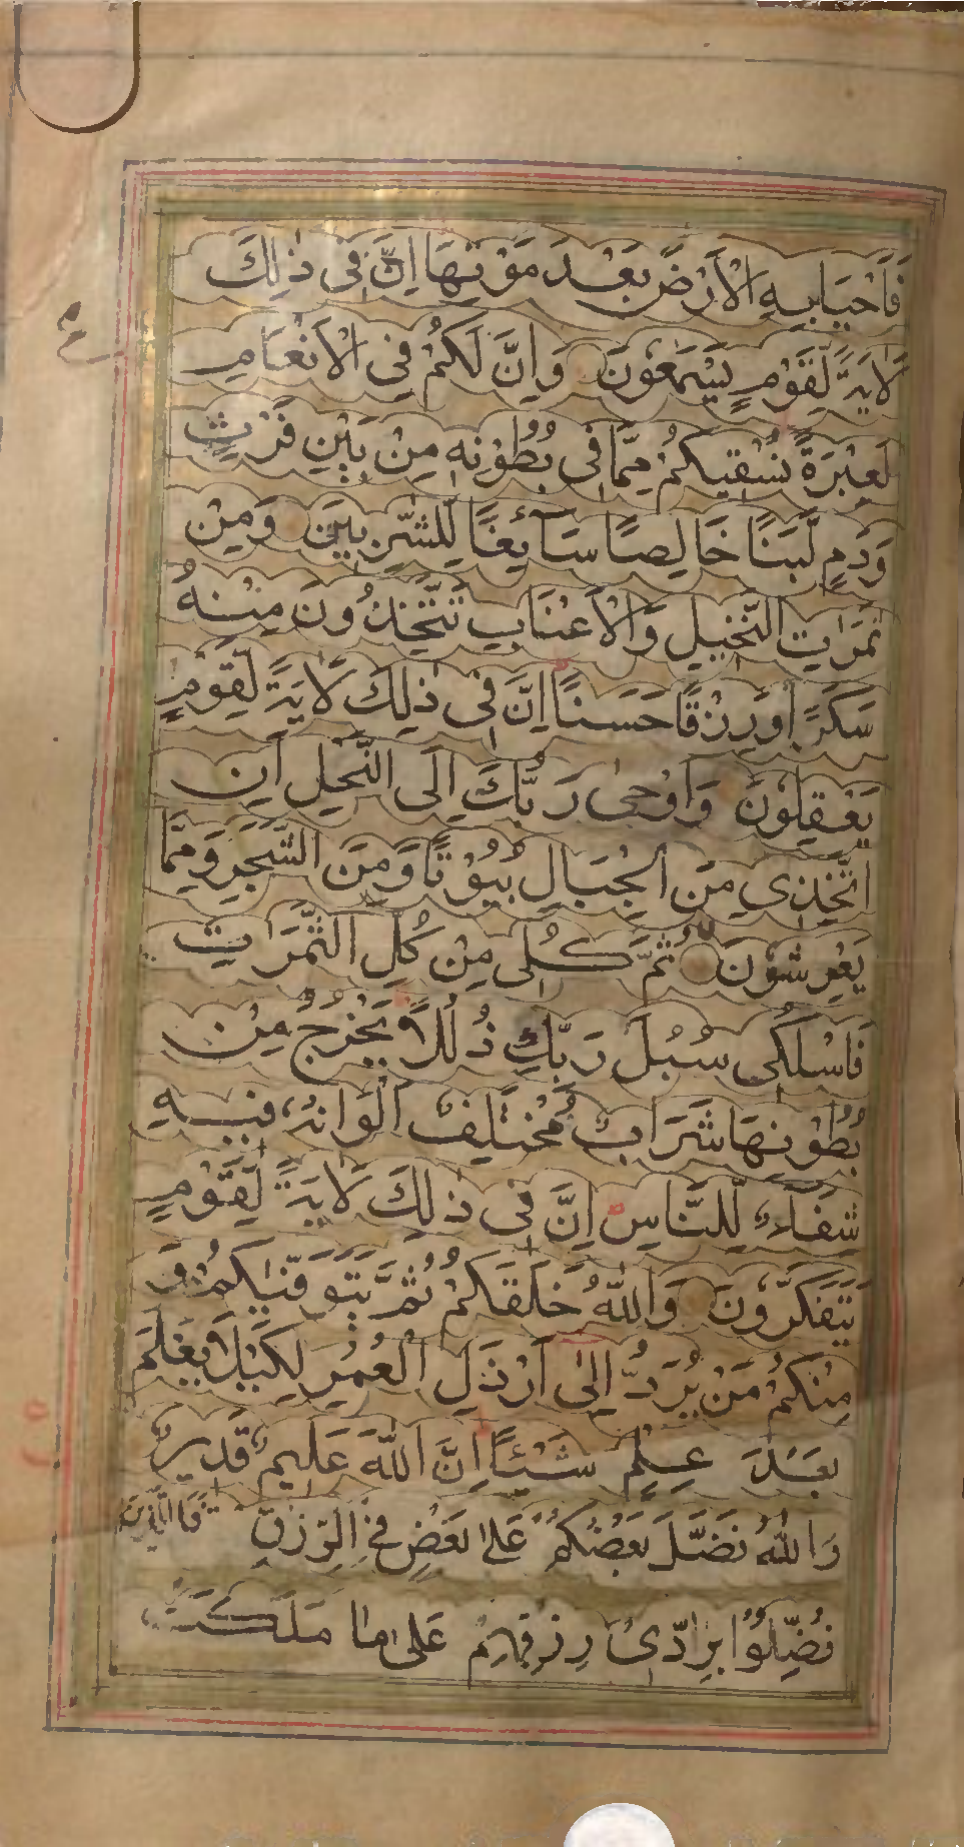 فَاَحْيَا بِهِ الْاَرْضَ بَعْدَ مَوْتِهَا اِنَّ فِى ذٰلِكَ
لَاٰيَةً لِّقَوْمٍ يَّسْمَعُوْنَ وَاِنَّ لَكُمْ فِى الْاَنْعَامِ
ع
لَعِبْرَةً نُسْقِيْكُمْ مِمَّا فِى بُطُوْنِهِ مِنْ بَيْنِ فَرْثٍ
وَدَمٍ لَّبَنًا خَالِصًا سَآئِغًا لِّلشّٰرِبِيْنَ وَمِنْ
ثَمَرٰتِ النَّخِيْلِ وَالْاَعْنَابِ تَتَّخِذُوْنَ مِنْهُ
سَكَرًا وَّرِزْقًا حَسَنًا اِنَّ فِى ذٰلِكَ لَاٰيَةً لِّقَوْمٍ
يَّعْقِلُوْنَ وَاَوْحٰى رَبُّكَ اِلَى النَّحْلِ اَنِ
اتَّخِذِى مِنَ الْجِبَالِ بُيُوْتًا وَّمِنَ الشَّجَرِ وَمِمَّا
يَعْرِشُوْنَ ثُمَّ كُلِى مِنْ كُلِّ الثَّمَرٰتِ
فَاسْلُكِى سُبُلَ رَبِّكِ ذُلُلًا يَخْرُجُ مِنْ
بُطُوْنِهَا شَرَابٌ مُّخْتَلِفٌ اَلْوَانُهُ فِيْهِ
شِفَآءٌ لِّلنَّاسِ اِنَّ فِى ذٰلِكَ لَاٰيَةً لِّقَوْمٍ
يَّتَفَكَّرُوْنَ وَاللّٰهُ خَلَقَكُمْ ثُمَّ يَتَوَفّٰىكُمْ وَ
مِنْكُمْ مَّنْ يُّرَدُّ اِلٰى اَرْذَلِ الْعُمُرِ لِكَيْلَا يَعْلَمَ
بَعْدَ عِلْمٍ شَيْئًا اِنَّ اللّٰهَ عَلِيْمٌ قَدِيْرٌ
وَاللّٰهُ فَضَّلَ بَعْضَكُمْ عَلٰى بَعْضٍ فِى الرِّزْقِ فَمَا الَّذِيْنَ
فُضِّلُوْا بِرَادِّى رِزْقِهِمْ عَلٰى مَا مَلَكَتْ